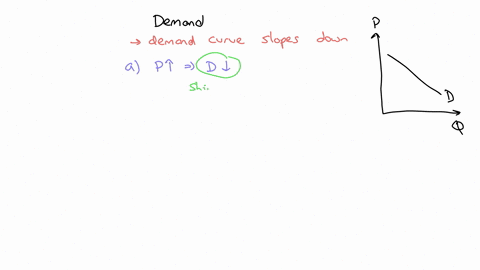 Demand
→ demand curve slopes down
a) P↑ ⇒ D↓
shi
P
D
Q